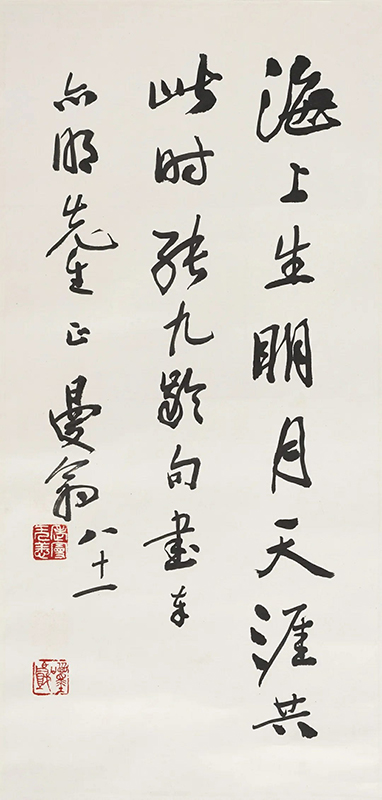 海上生明月天涯共
此时張九齡句書奉
亦明先生正 曼翁八十一